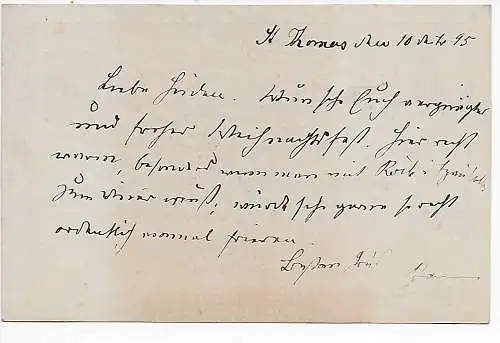 St Thomas den 10 Dez 95
Liebe Wünsche Euch vergnügtes
und frohes Weihnachtsfest. Hier recht
warm, besonders wenn man mit Rock &
zum Diner muß, würde sehr gerne so recht
ordentlich einmal frieren.
Besten Gruß